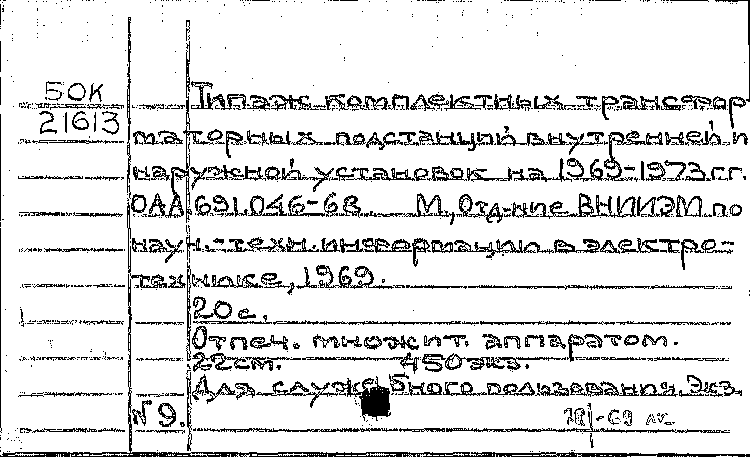 50К
21613
Типаж комплектных трансфор
маторных подстанций внутренней и
наружной установок на 1969-1973 гг.
ОАА.691.046-68. М, Отд-ние ВНИИЭМ по
науч.-техн. информации в электро-
технике, 1969.
20 с.
Отпеч. множит. аппаратом.
22 см. 450 экз.
Для служебного пользования. Экз.
№ 9.